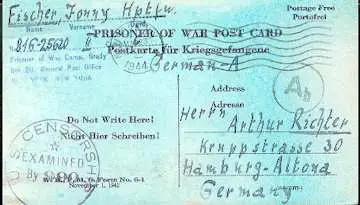 Fischer, Fonny Hptfw.
Name Vorname
Postage Free
Portofrei
PRISONER OF WAR POST CARD
Postkarte für Kriegsgefangene
81G-25620 H
Prisoner of War Camp, Grady
General Post Office
NEW YORK
1944
Germany-A
Address
Adresse
Ab
Do Not Write Here!
Nicht Hier Schreiben!
Herrn
Arthur Richter
Kruppstrasse 30
Hamburg-Altona
Germany
CENSORSHIP
EXAMINED
By
W. D., P. M. G. Form No. 6-1
November 1, 1942